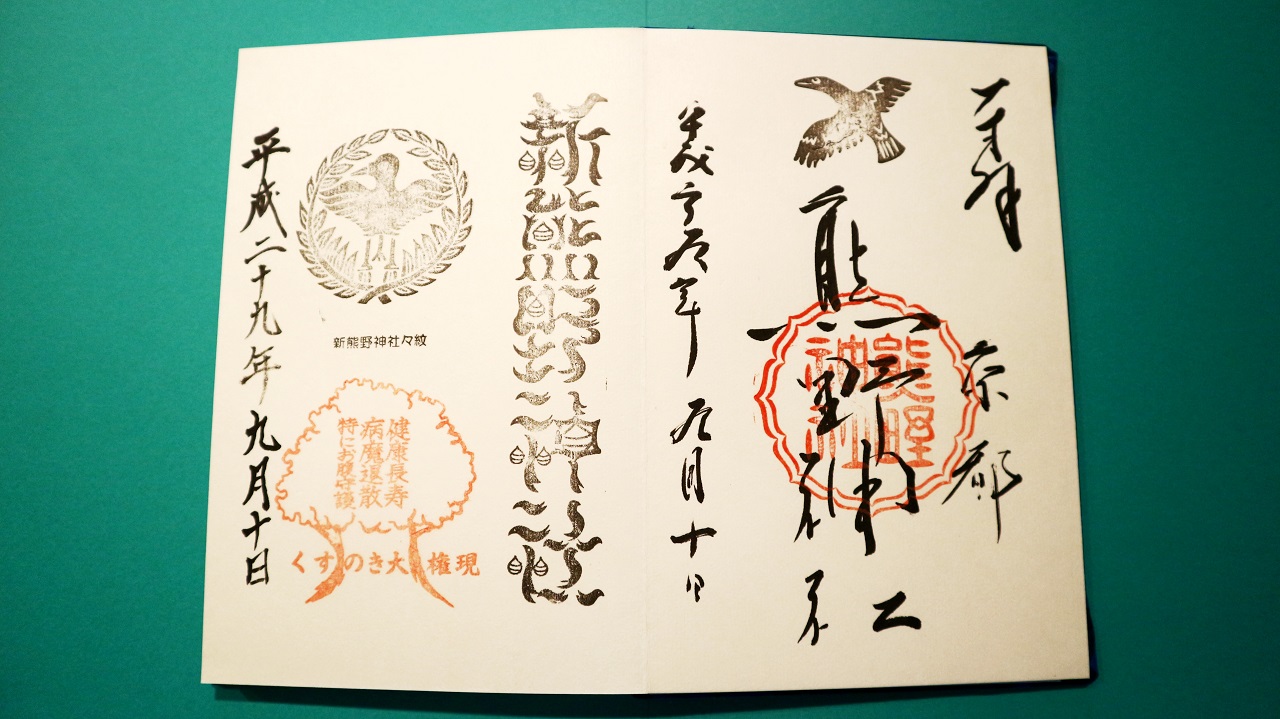 奉拝
京都
熊野神社
熊野
神社
平成二十九年 九月十日
新熊野神社
新熊野神社々紋
健康長寿
病魔退散
特にお腹守護
くすのき大権現
平成二十九年 九月十日